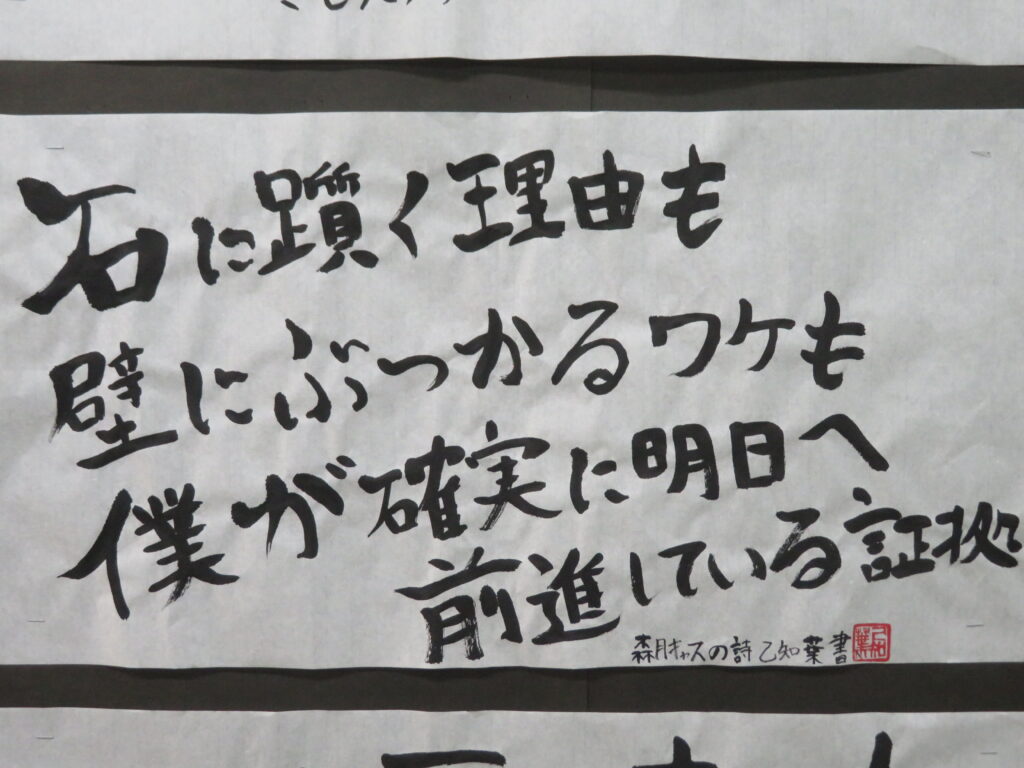 石に躓く理由も
壁にぶつかるワケも
僕が確実に明日へ
前進している証拠
森月キャスの詩 乙知葉書